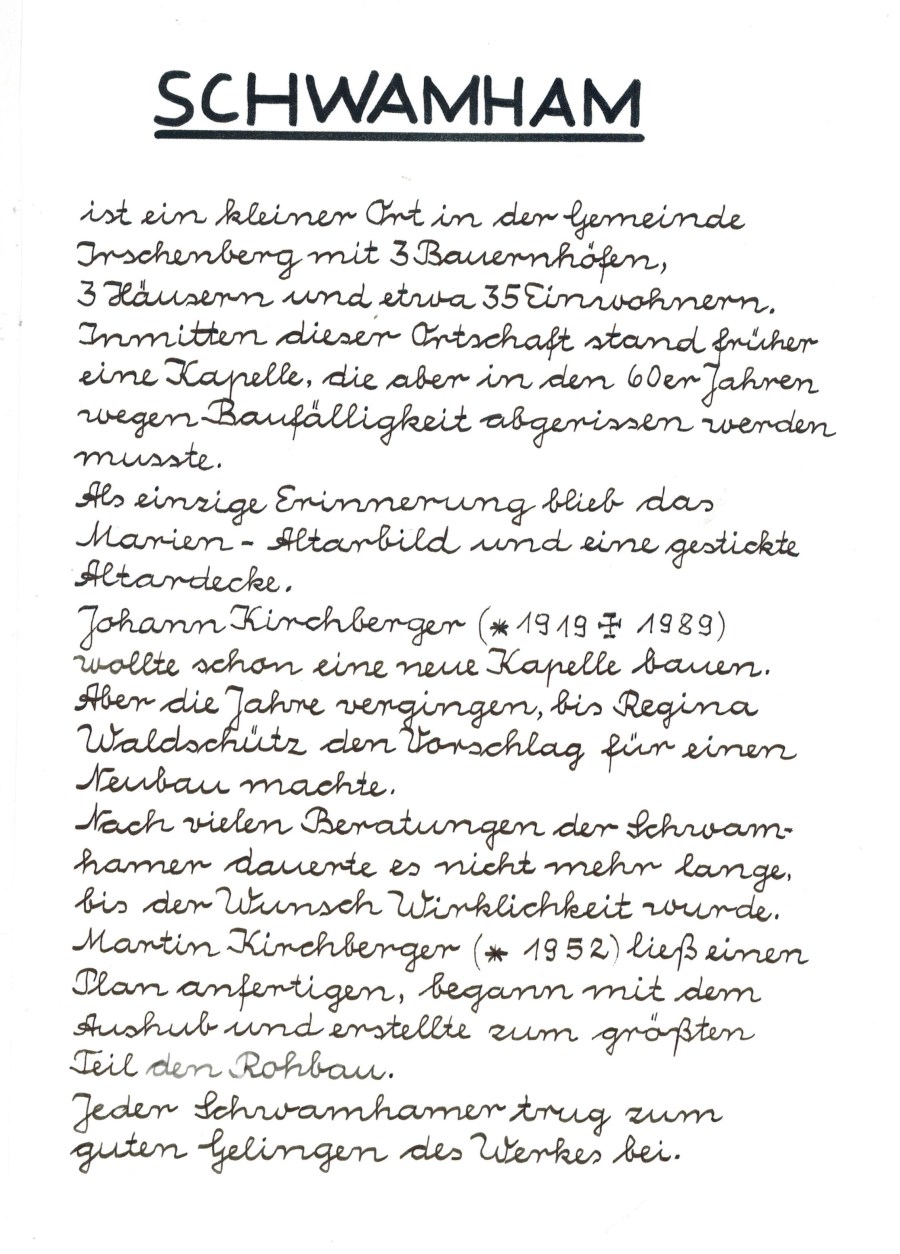 SCHWAMHAM
ist ein kleiner Ort in der Gemeinde
Irschenberg mit 3 Bauernhöfen,
3 Häusern und etwa 35 Einwohnern.
Inmitten dieser Ortschaft stand früher
eine Kapelle, die aber in den 60er Jahren
wegen Baufälligkeit abgerissen werden
musste.
Als einzige Erinnerung blieb das
Marien - Altarbild und eine gestickte
Altardecke.
Johann Kirchberger (* 1919 ✠ 1989)
wollte schon eine neue Kapelle bauen.
Aber die Jahre vergingen, bis Regina
Waldschütz den Vorschlag für einen
Neubau machte.
Nach vielen Beratungen der Schwam-
hamer dauerte es nicht mehr lange,
bis der Wunsch Wirklichkeit wurde.
Martin Kirchberger (* 1952) ließ einen
Plan anfertigen, begann mit dem
Aushub und erstellte zum größten
Teil den Rohbau.
Jeder Schwamhamer trug zum
guten Gelingen des Werkes bei.